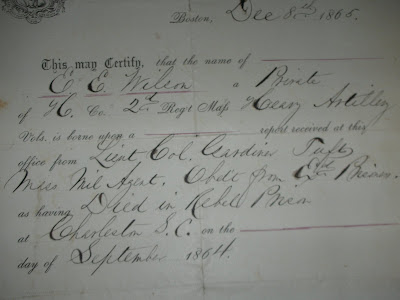 Boston, Dec 8th 1865.
This may Certify, that the name of
E. E. Wilson a Private
of H. Co. 2d Reg't Mass Heavy Artillery
Vols. is borne upon a report received at this
office from Lieut. Col. Gardiner Tufts
Mass Mil Agent. from Prison
as having Died in Rebel Prison
at Charleston S.C. on the
day of September 1864.